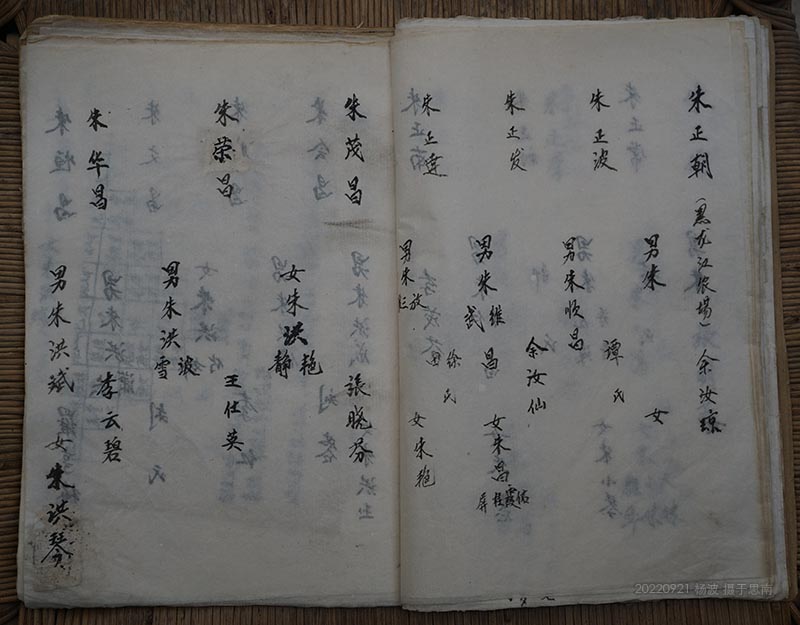 朱正朝（黑龙江农场）余汝琼
男朱 女
朱正波 谭氏
男朱顺昌
朱正发 余汝仙
男朱 维 昌 女朱昌
武 霞
朱正连 徐氏
男朱 放 女朱艳
朱茂昌 張晓芬
女朱洪 艳
静
朱荣昌 王仕英
男朱洪 波
雪
朱华昌 李云碧
男朱洪斌 女朱洪琴
20220921 杨波 摄于思南